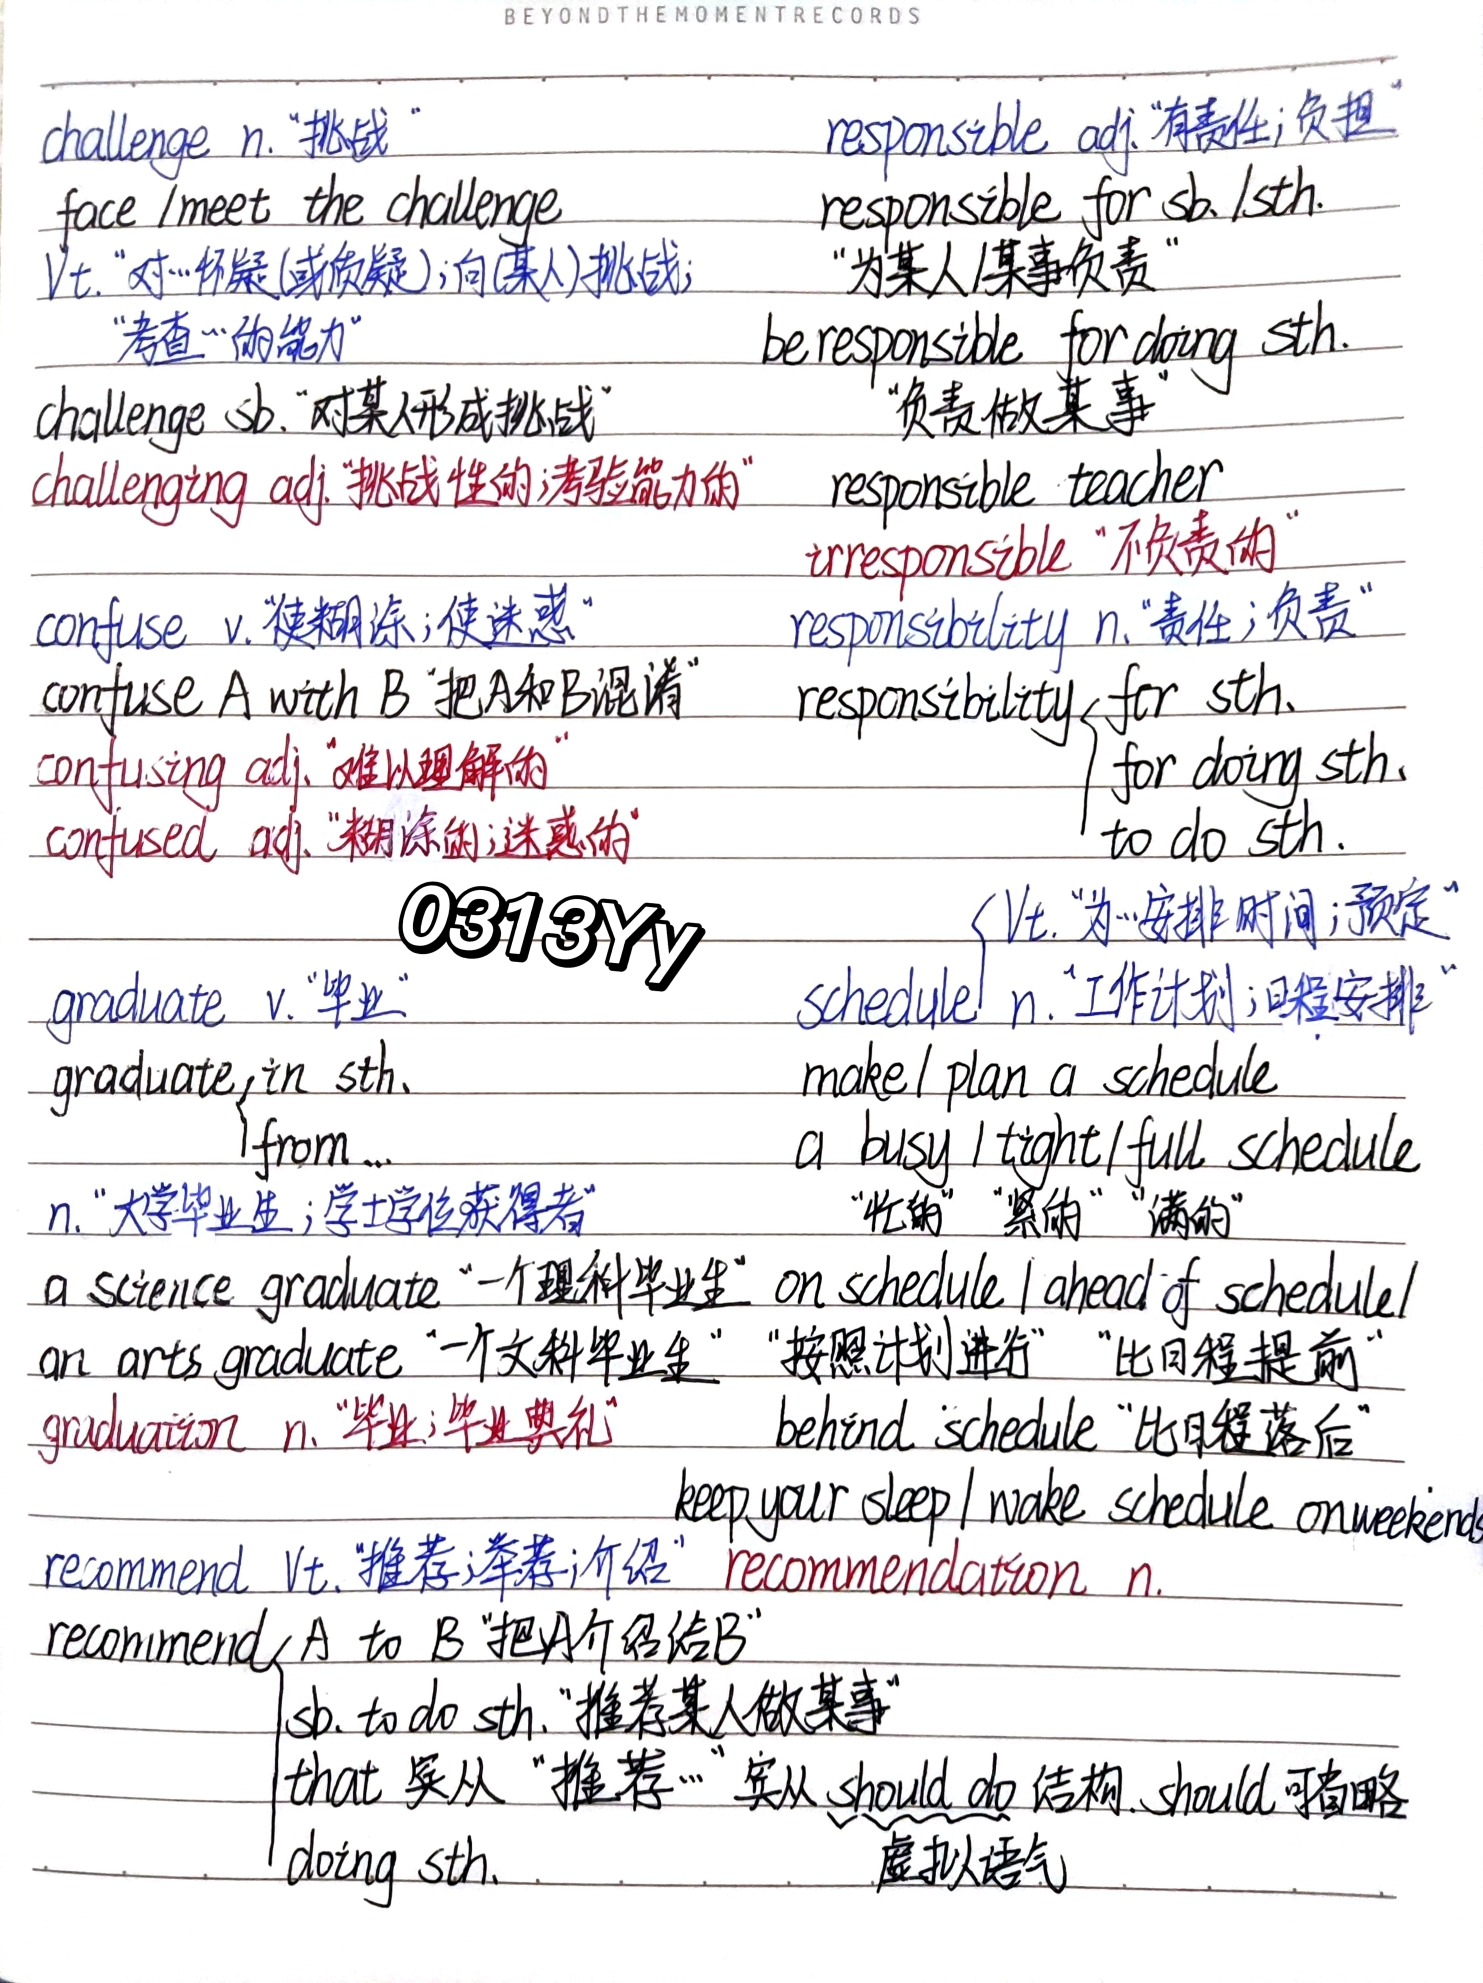 BEYONDTHEMOMENTRECORDS
challenge n. "挑战"
face /meet the challenge
Vt. "对…怀疑(或质疑);向(某人)挑战;
"考查…的能力"
challenge sb. "对某人形成挑战"
challenging adj. "挑战性的;考验能力的"
confuse v. "使糊涂;使迷惑"
confuse A with B "把A和B混淆"
confusing adj. "难以理解的"
confused adj. "糊涂的;迷惑的"
0313Yy
graduate v. "毕业"
graduate in sth.
from...
n. "大学毕业生;学士学位获得者"
a science graduate "一个理科毕业生"
an arts graduate "一个文科毕业生"
graduation n. "毕业;毕业典礼"
responsible adj. "有责任;负担"
responsible for sb. /sth.
"为某人/某事负责"
be responsible for doing sth.
"负责做某事"
responsible teacher
irresponsible "不负责的"
responsibility n. "责任;负责"
responsibility for sth.
for doing sth.
to do sth.
Vt. "为…安排时间;预定"
schedule n. "工作计划;日程安排"
make/ plan a schedule
a busy / tight / full schedule
"忙的" "紧的" "满的"
on schedule / ahead of schedule/
"按照计划进行" "比日程提前"
behind schedule "比日程落后"
keep your sleep / wake schedule on weekends
recommend Vt. "推荐;举荐;介绍" recommendation n.
recommend A to B "把A介绍给B"
sb. to do sth. "推荐某人做某事"
that 宾从 "推荐…" 宾从 should do 结构. should 可省略
doing sth. 虚拟语气